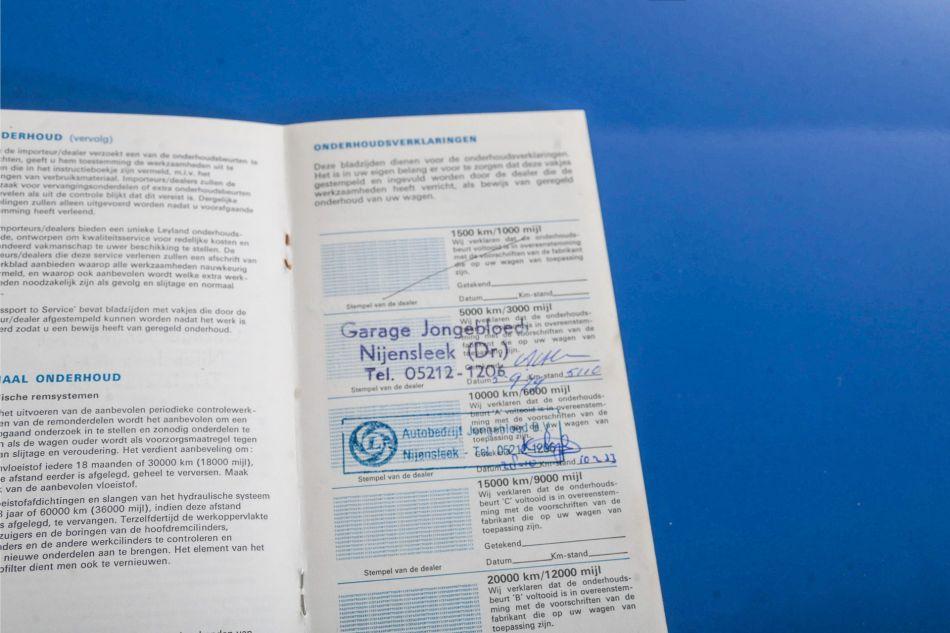 DERHOUD (vervolg)
de importeur/dealer verzoekt een van de onderhoudsbeurten te
chten, geeft u hem toestemming de werkzaamheden uit te
en die in het instructieboekje zijn vermeld, m.i.v. het
ngen van verbruiksmateriaal. Importeurs/dealers zullen de
zaak voor vervangingsonderdelen of extra onderhoudsbeurten
velen als uit de controle blijkt dat dit vereist is. Dergelijke
elingen zullen alleen uitgevoerd worden nadat u voorafgaande
mming heeft verleend.
mporteurs/dealers bieden een unieke Leyland onderhouds-
de, ontworpen om kwaliteitsservice voor redelijke kosten en
andeerd vakmanschap te uwer beschikking te stellen. De
eurs/dealers die deze service verlenen zullen een afschrift van
rkblad aanbieden waarop alle werkzaamheden nauwkeurig
rmeld, en waarop ook aanbevolen wordt welke extra werk-
eden noodzakelijk zijn als gevolg en slijtage en normaal
ssport to Service' bevat bladzijden met vakjes die door de
ur/dealer afgestempeld kunnen worden nadat het werk is
erd zodat u een bewijs heeft van geregeld onderhoud.
AAL ONDERHOUD
ische remsystemen
het uitvoeren van de aanbevolen periodieke controlewerk-
n van de remonderdelen wordt het aanbevolen om een
gaand onderzoek in te stellen en zonodig onderdelen te
n als de wagen ouder wordt als voorzorgsmaatregel tegen
an slijtage en veroudering. Het verdient aanbeveling om:
nvloeistof iedere 18 maanden of 30000 km (18000 mijl),
e afstand eerder is afgelegd, geheel te verversen. Maak
k van de aanbevolen vloeistof.
oeistofafdichtingen en slangen van het hydraulische systeem
3 jaar of 60000 km (36000 mijl), indien deze afstand
s afgelegd, te vervangen. Terzelfdertijd de werkoppervlakte
zuigers en de boringen van de hoofdremcilinders,
nders en de andere werkcilinders te controleren en
nieuwe onderdelen aan te brengen. Het element van het
ofilter dient men ook te vernieuwen.
ONDERHOUDSVERKLARINGEN
Deze bladzijden dienen voor de onderhoudsverklaringen.
Het is in uw eigen belang er voor te zorgen dat deze vakjes
gestempeld en ingevuld worden door de dealer die de
werkzaamheden heeft verricht, als bewijs van geregeld
onderhoud van uw wagen.
1500 km/1000 mijl
Wij verklaren dat de onderhouds-
beurt voltooid is in overeenstemming
met de voorschriften van de fabrikant
die op uw wagen van toepassing
zijn.
Getekend
Stempel van de dealer
Datum Km-stand
5000 km/3000 mijl
Wij verklaren dat de onderhouds-
Garage Jongebloed
Nijensleek (Dr.)
Tel. 05212-1206
Datum Km-stand
Stempel van de dealer
10000 km/6000 mijl
Wij verklaren dat de onderhouds-
beurt 'A' voltooid is in overeenstem-
ming met de voorschriften van de
fabrikant die op uw wagen van
toepassing zijn.
Autobedrijf Jongebloed B.V.
Nijensleek - Tel. 05212-1206
Datum Km-stand
Stempel van de dealer
15000 km/9000 mijl
Wij verklaren dat de onderhouds-
beurt 'C' voltooid is in overeenstem-
ming met de voorschriften van de
fabrikant die op uw wagen van
toepassing zijn.
Getekend
Datum Km-stand
Stempel van de dealer
20000 km/12000 mijl
Wij verklaren dat de onderhouds-
beurt 'B' voltooid is in overeenstem-
ming met de voorschriften van de
fabrikant die op uw wagen van
toepassing zijn.